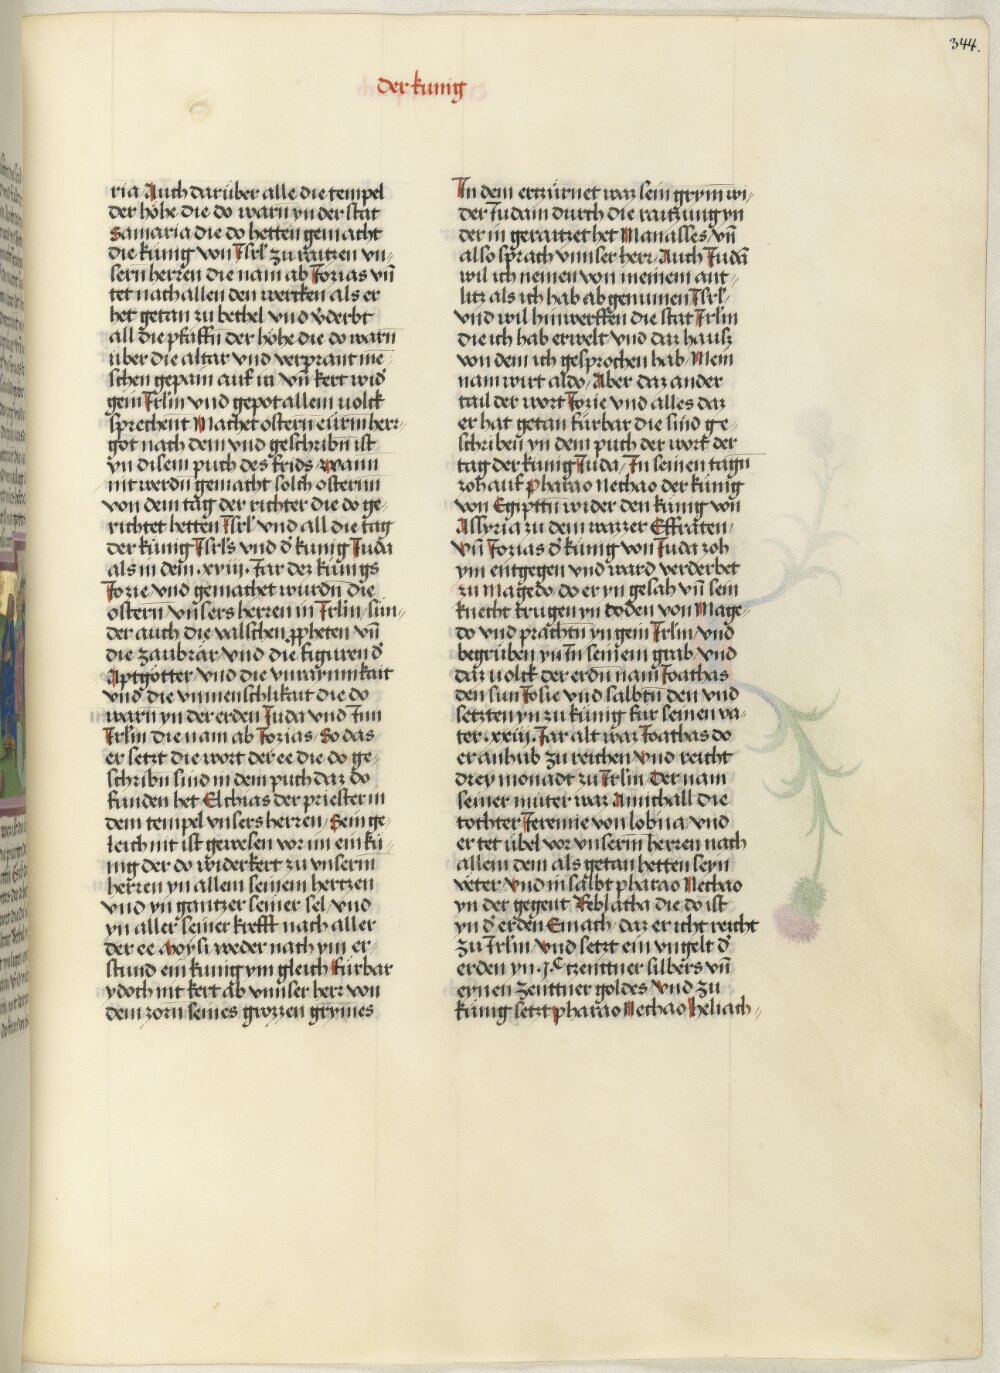 344.
der kunig
ria Auch darüber alle die tempel
der höhe die do warn yn der stat
Samaria die do hetten gemacht
die künig von Isrl zu raitzen vn-
sern herren die nam ab Iozias vñ
tet nach allen den wercken als er
het getan zu bethel vnd v̾derbt
all die pfaffn der höhe die do warn
über die altar vnd verprant me
schen gepain auf in vñ kert wid̾
gein Irlm vnd gepot allem volck
sprechent Machet ostern eürm herr-
got nach dem vnd geschribn ist
yn disem puch des frids wann
nit werdn gemacht solch osternn
von dem tag der richter die do ge-
richtet hetten Isrl vnd all die tag
der künig Isrls vnd d̾ künig Juda
als in dem .xviii. Jar dez künigs
Iozie vnd gemachet wurdn die
ostern vnsers herren in Irlm sun-
der auch die valschen ꝓpheten vñ
die zaubrär vnd die figuren d̾
Aptgötter vnd die vnraynnikait
vnd die vnmenschlikait die do
warn yn der erden Juda vnd Inn
Irlm die nam ab Iozias So das
er setzt die wort der ee die do ge-
schribn sind in dem puch daz do
funden het Elchias der priester in
dem tempel vnsers herren Sein ge-
leich nit ist gewesen vor im ein kü-
nig der do widerkert zu vnserm
herren yn allem seinem hertzen
vnd yn gantzer seiner sel vnd
yn aller seiner krefft nach aller
der ee Moysi weder nach ym er-
stund ein kunig ym gleich fürbar
ydoch nit kert ab vnnser herr von
dem zorn seines grozzen grymes
In dem erzürnet waz sein grym wi-
der Judam durch die raitzung yn
der in geraitzet het Manasses vñ
also sprach vnnser herr Auch Judā
wil ich nemen von meinem ant-
litz als ich hab abgenumen Isrl
vnd wil hinwerffen die stat Irlm
die ich hab erwelt vnd daz hausz
von dem ich gesprochen hab Mein
nam wirt aldo Aber daz ander
tail der wort Iozie vnd alles daz
er hat getan fürbar die sind ge-
schriben yn dem puch der wort der
tag der künig Juda In seinen tagn
zoh auf Pharao Nechao der künig
von Egipttn wider den künig von
Assyria zu dem wazzer Effraten
vñ Iozias d̾ künig von Juda zoh
ym entgegen vnd ward verderbet
zu Magedo do er yn gesah vñ sein
knecht trugen yn toden von Mage-
do vnd prachtn yn gein Irlm vnd
begruben yn In seinem grab vnd
daz volck der erdn nam Ioathas
den sun Iosie vnd salbtn den vnd
setzten yn zu künig für seinen va-
ter .xxiii. Jar alt waz Ioathas do
er anhub zu reichen vnd reicht
drey monadt zu Irlm Der nam
seiner muter waz Amithall die
tochter Ieremie von lobna vnd
er tet übel vor vnserm herren nach
allem dem als getan hetten seyn
veter vnd in salbt pharao Nechao
yn der gegent Reblatha die do ist
yn d̾ erden Emach daz er icht reicht
zu Irlm vnd setzt ein vngelt d̾
erden yn .j.ᶜ zenttner silbers vñ
eynen zenttner goldes vnd zu
künig setzt pharao Nechao heliach-